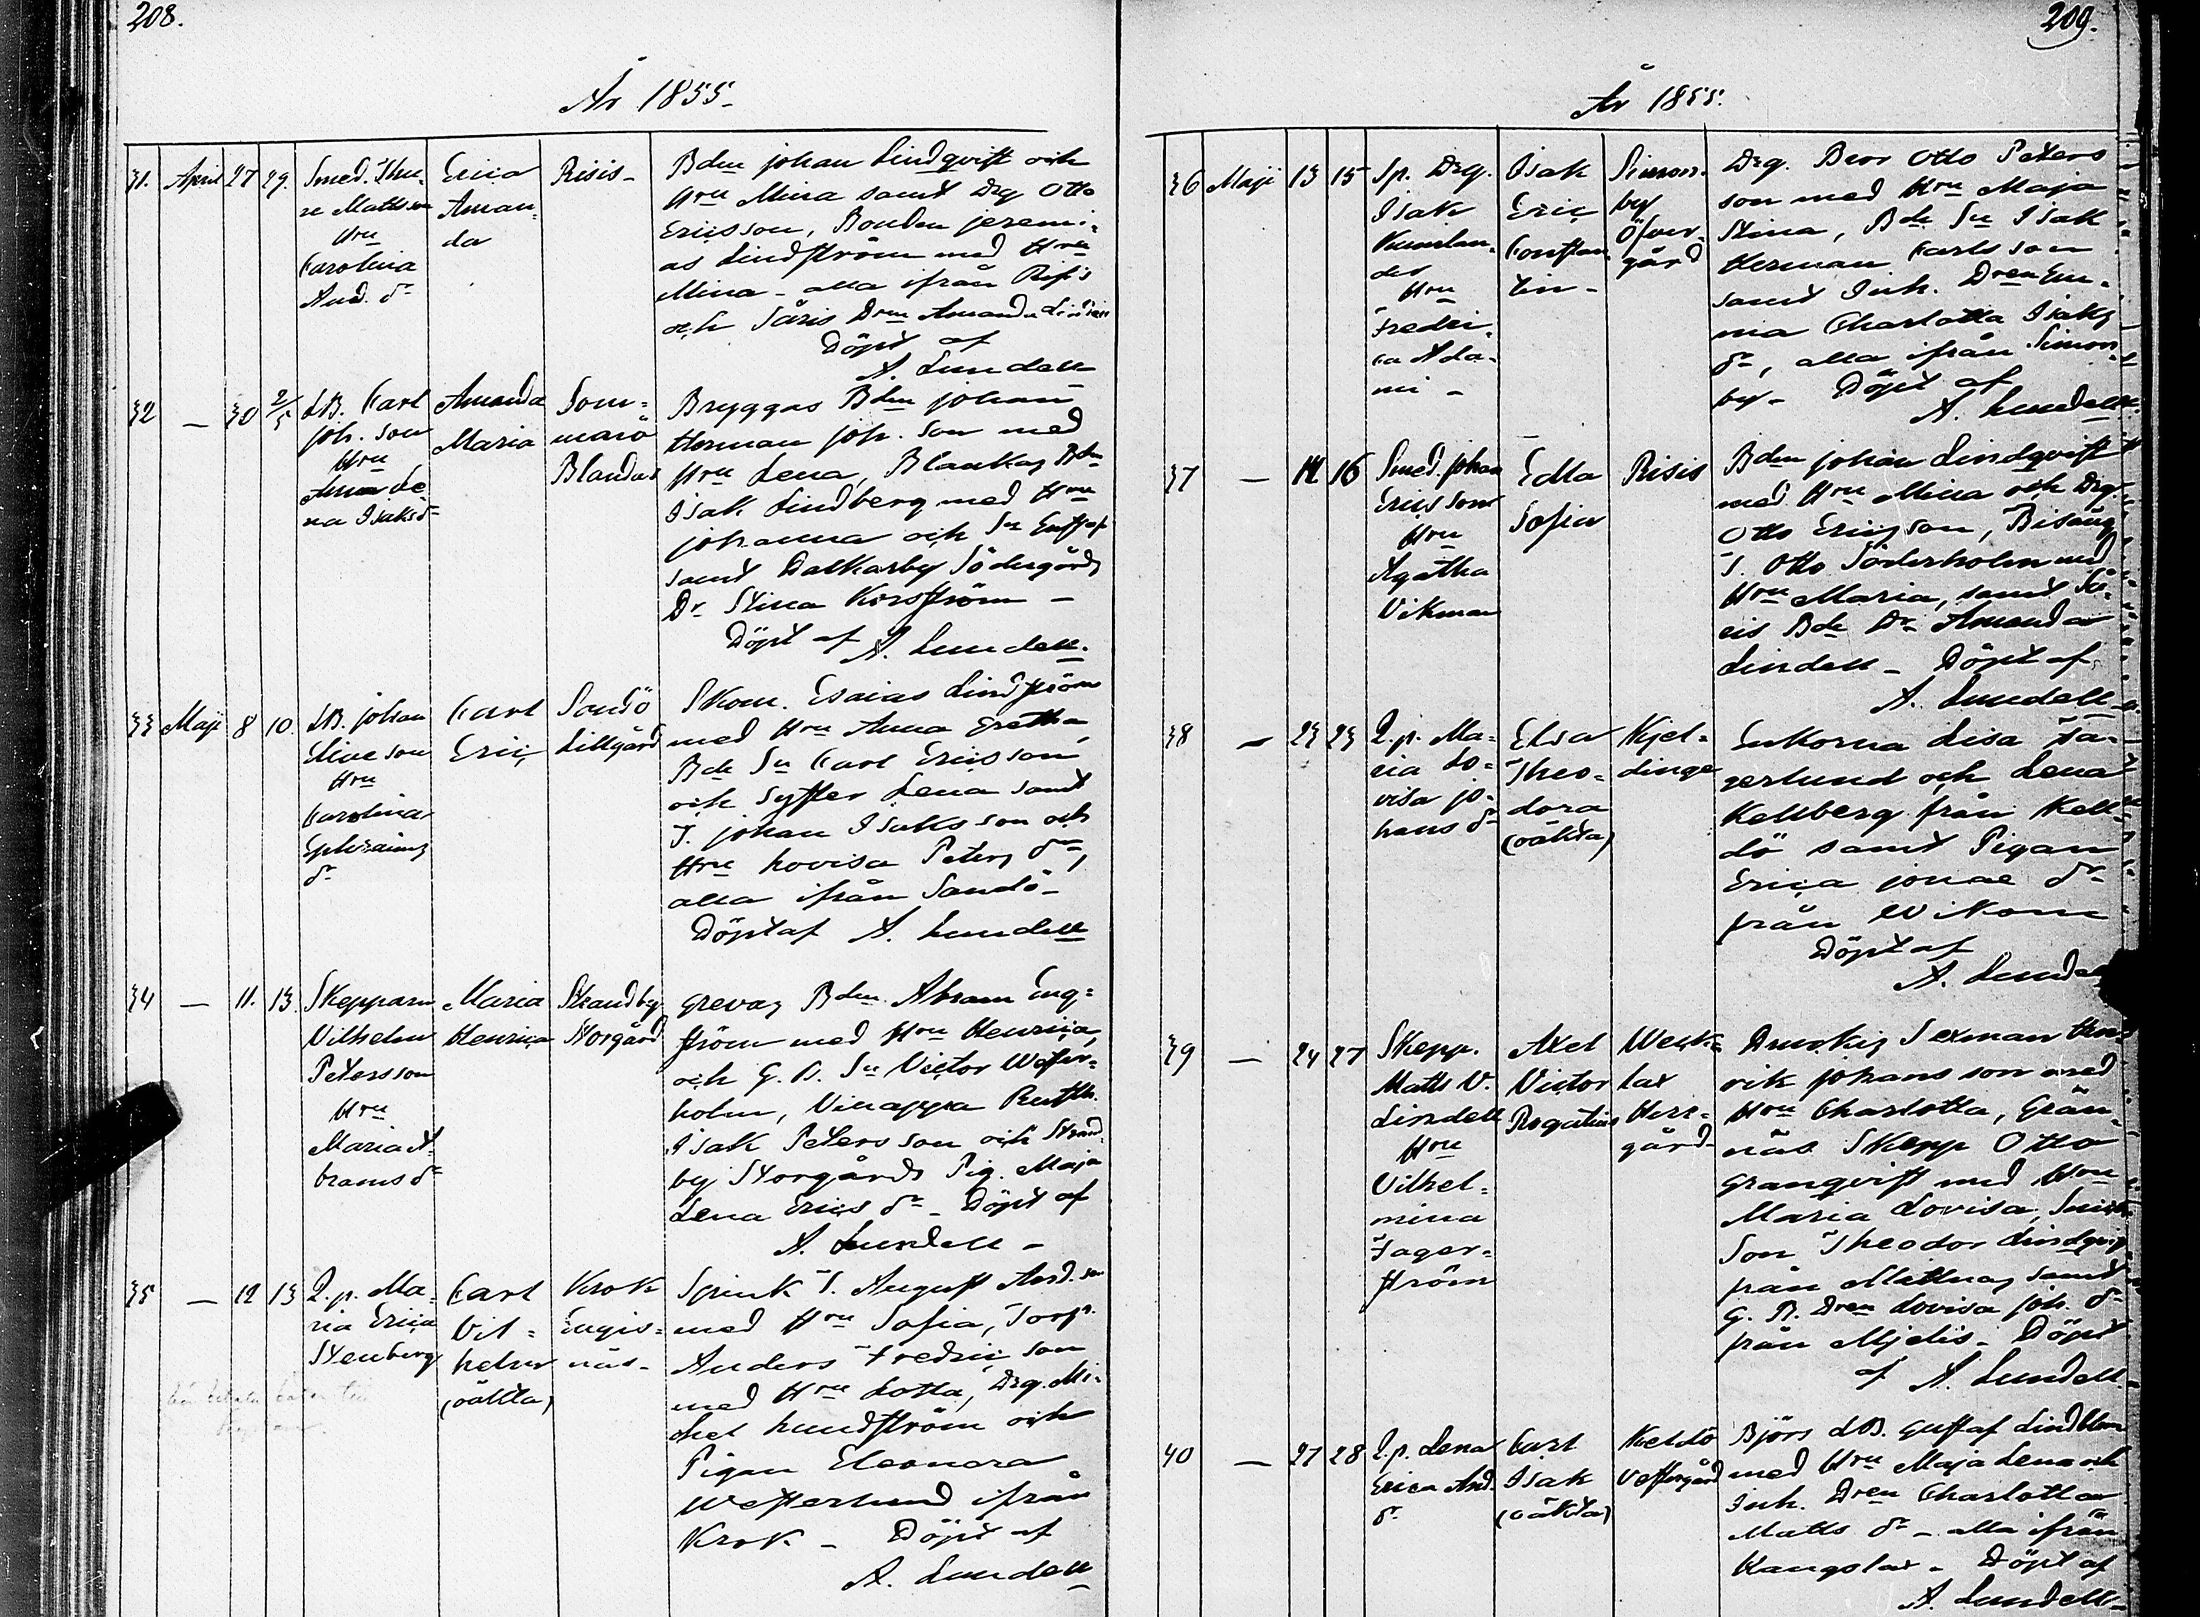 208.
År 1855.
31. April 27 29.
Smed. Thu-
re Mattsson
Hru
Carolina
And. dr
Erica
Aman-
da
Risis-
Bdn johan Lindqvist och
Hru Mina samt Drg Otto
Ericsson, Bonden jeremi-
as Lindström med Hru
Mina - alla ifrån Risis
och Såris Dren Amanda
Döpt af
A. Lundell
32 - 30 2/5
LB. Carl
joh. son
Hru
Anna Le
na Isaksdr
Amanda
Maria
Som=
marö
Blandas
Bryggas Bdn johan
Herman joh. son med
Hru Lena, Blankas Bdn
Isak Lindberg med Hru
johanna och Sn Gustaf
samt Dalkarby Södergårds
Dr Stina Korsström -
Döpt af A. Lundell.
33 Maji 8 10.
LB. johan
Elieson
Hru
Carolina
Ephraims
dr
Carl
Eric
Sandö
Lillgård
Skom. Esaias Lindström
med Hru Anna Gretha,
Bde Sn Carl Ericsson
och Syster Lena samt
T. johan Isaksson och
Hru Lovisa Peters dr,
alla ifrån Sandö-
Döpt af A. Lundell
34 - 11. 13.
Skepparn
Vilhelm
Petersson
Hru
Maria A-
brams dr
Maria
Henrica
Strandby
Norgård
Grevas Bdn. Abram Eng=
ström med Hru Henrica,
och G. B. Sn Victor Wester-
holm, Vinappa Rusth.
Isak Petersson och Strand-
by Norgårds Pig. Maja
Lena Erics dr - Döpt af
A. Lundell -
35 - 12 13
Q. p. Ma=
ria Erica
Stenberg
Carl
Vil=
helm
(oäkta)
Krok
Engis=
näs-
Spink T. August And. son
med Hru Sofia, Torp.
Anders Fredric son
med Hru Lotta, Drg. Mi-
chel Lundström och
Pigan Eleonora
Westerlund ifrån
Krok - Döpt af
A. Lundell
209.
År 1855.
36 Maji 13 15
Sp. Drg.
Isak
Hru
Fredri-
ca Ada-
mi -
Isak
Eric
Constan
tin-
Simon-
by
Öfver-
gård
Drg. Bror Otto Peters
son med Hru Maja
Stina, Bde Sn Isak
Herman Carlsson
samt Inh. Dren Em-
ma Charlotta Isaks
dr, alla ifrån Simon-
by- Döpt af
A. Lundell.
37 - 14 16
Smed. johan
Ericsson
Hru
Agatha
Vikman
Edla
Sofia
Risis
Bdn johan Lindqvist
med Hru Mina och Drg.
Otto Ericsson, Bisång
T. Otto Söderholm med
Hru Maria, samt Så-
ris Bde Dr Amanda
Lindell - Döpt af
A. Lundell
38 - 23 23
Q. p. Ma=
ria Lo-
visa jo-
hans dr
Elsa
Theo-
dora
(oäkta)
Kjel=
dinge
Enkorna Lisa Fa-
gerlund och Lena
Kellberg från Kell-
dö samt Pigan
Erica jonae dr
från Wikom
Döpt af
A. Lunde
39 - 24 27
Skepp.
Matts V.
Lindell
Hru
Vilhel=
mina
Fager=
ström
Axel
Victor
Rogatius
Westr
lax
Herr-
gård-
Sexman Hen-
rik johansson med
Hru Charlotta, Grän-
näs Skepp Otto
Granqvist med Hru
Maria Lovisa,
Son Theodor Lindqvist
från Mattnas samt
G. B. Dren Lovisa joh. dr
från Mjelis - Döpt
af A. Lundell.
40 - 27 28
Q. p. Lena
Erica And.
dr
Carl
Isak
(oäkta)
Keldö
Vestergård
Björs LB. Gustaf Lindblom
med Hru Maja Lena och
Inh. Dren Charlotta
Matts dr - alla ifrån
Hangslax - Döpt af
A. Lundell-